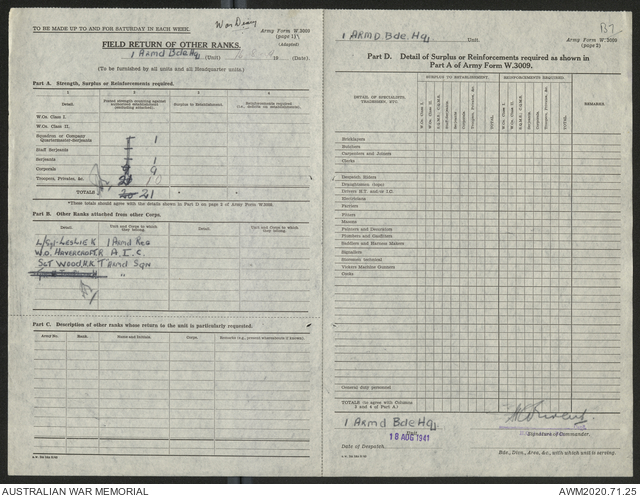 TO BE MADE UP TO AND FOR SATURDAY IN EACH WEEK.
War Diary
Army Form W.3009
(page 1)
(Adapted)
FIELD RETURN OF OTHER RANKS.
1 Armd Bde Hq (Unit) (Date)
(To be furnished by all units and all Headquarter units.)
Part A. Strength, Surplus or Reinforcements required.
1 2 3 4
Detail.
Surplus to Establishment.
W.Os. Class I.
W.Os. Class II.
Squadron or Company
Quartermaster-Serjeants 1
Staff Serjeants
Serjeants 1
Corporals 9
Troopers, Privates, &c. 10
TOTALS 20 21
*These totals should agree with the details shown in Part D on page 2 of Army Form W.3009.
Part B. Other Ranks attached from other Corps.
Detail. Unit and Corps to which they belong. Detail. Unit and Corps to which they belong.
L/Sgt. LESLIE K 1 Armd Reg
W.O. HAVERCROFT.R A.I.C.
SGT WOOD.H.K Sqn
Part C. Description of other ranks whose return to the unit is particularly requested.
Army No. Rank. Name and Initials. Corps. Remarks (e.g., present whereabouts if known).
1 ARMD Bde Hq Unit.
Army Form W.3009
(page 2)
Part D. Detail of Surplus or Reinforcements required as shown in
Part A of Army Form W.3009.
DETAIL OF SPECIALISTS, TRADESMEN, ETC.
SURPLUS TO ESTABLISHMENT.
REINFORCEMENTS REQUIRED.
TOTAL.
REMARKS.
Bricklayers
Butchers
Carpenters and Joiners
Clerks
Despatch Riders
Draughtsmen
Drivers H.T. and/or I.C.
Electricians
Farriers
Fitters
Masons
Painters and Decorators
Plumbers and Gasfitters
Saddlers and Harness Makers
Signallers
Storemen technical
Vickers Machine Gunners
Cooks
General duty personnel
TOTALS (to agree with Columns
3 and 4 of Part A.)
1 ARMD Bde Hq
Unit
18 AUG 1941
Date of Despatch
Signature of Commander.
Bde., Divn., Area, &c., with which unit is serving.
AUSTRALIAN WAR MEMORIAL
AWM2020.71.25